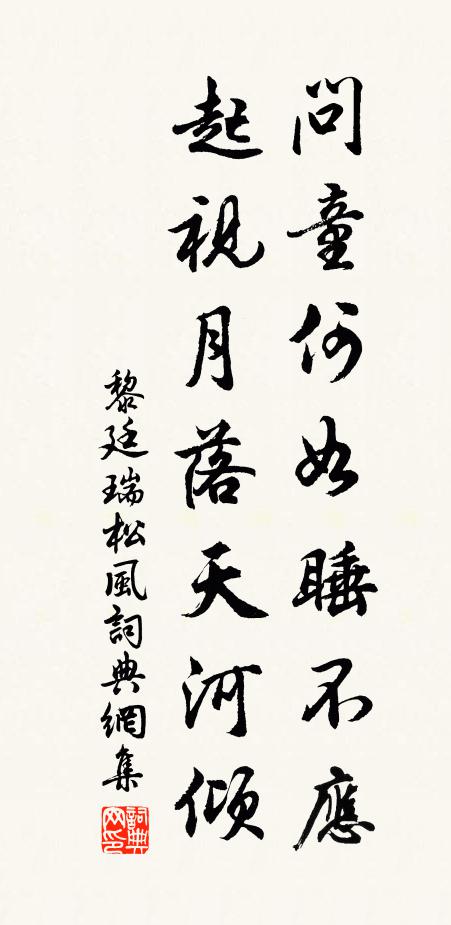 問童何如睡不應
起視月落天河傾
黎廷瑞松風詞典網集
詞典网印